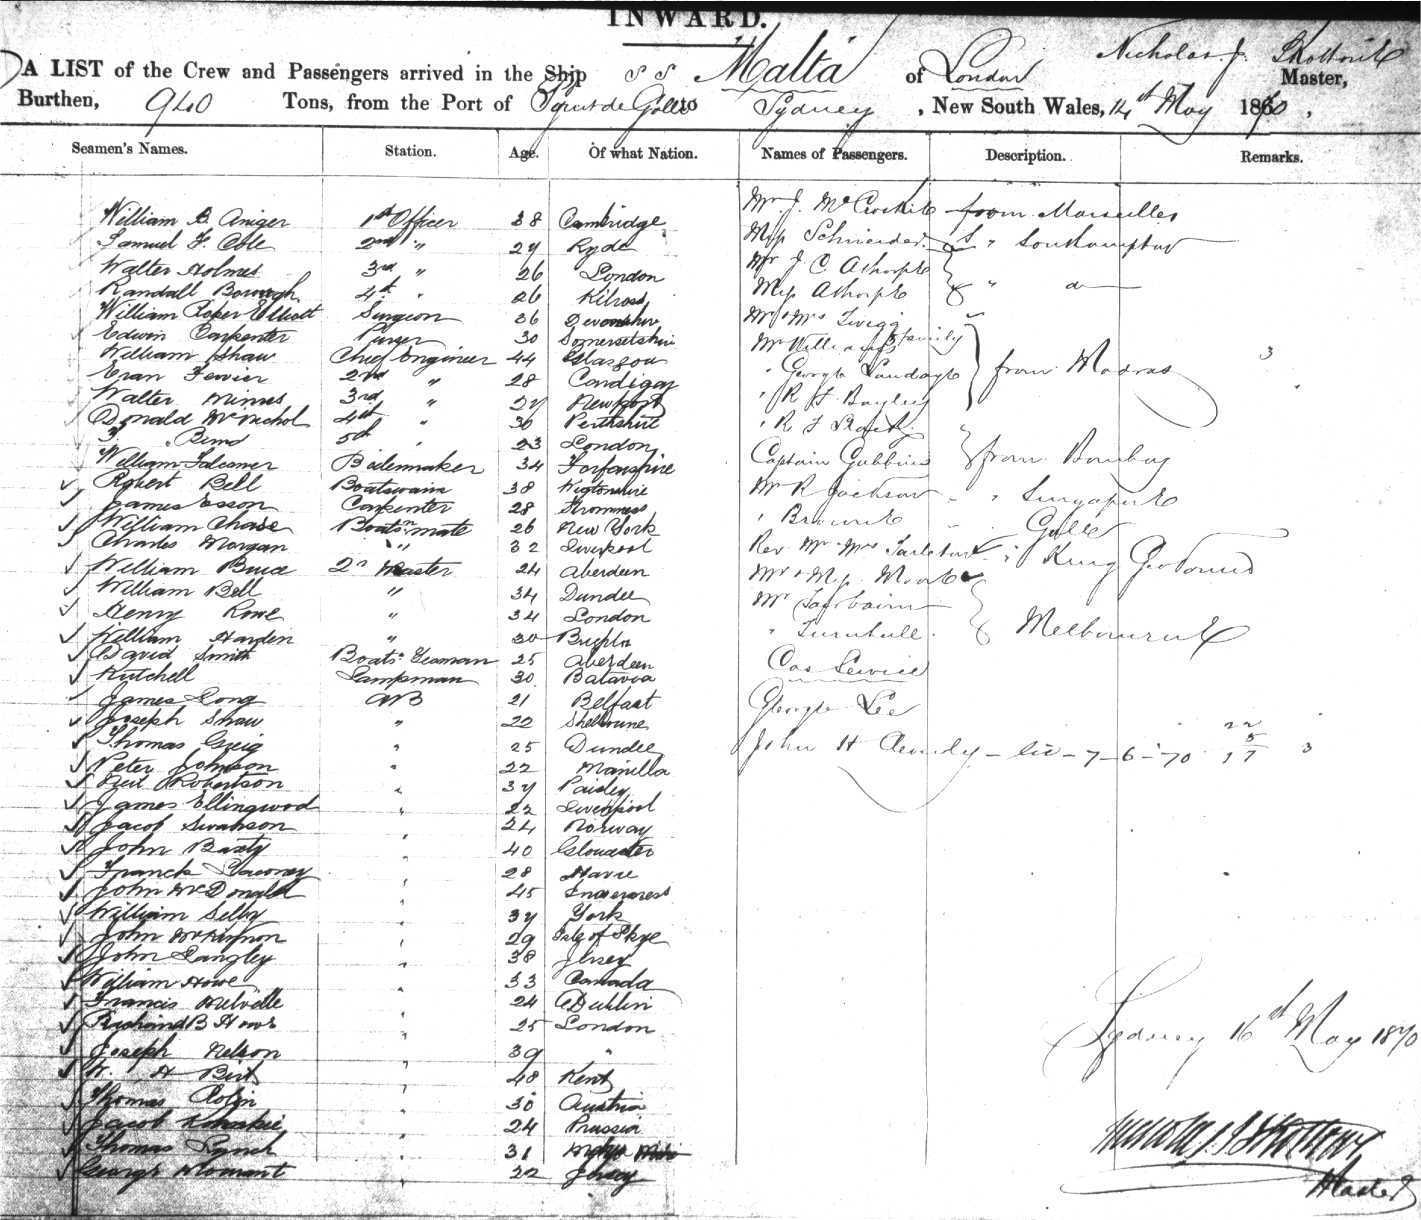 INWARD.
A LIST of the Crew and Passengers arrived in the Ship S S Malta of London Nicholas J. Skottowe Master,
Burthen, 940 Tons, from the Port of Point de Galle to Sydney, New South Wales, 14th May 1870,
Seamen's Names. Station. Age. Of what Nation. Names of Passengers. Description. Remarks.
William B Aniger 1st Officer 38 Cambridge Mr J. Mc from Marseilles
Samuel F. Cole 2nd " 27 Ryde Miss Schneider " Southampton
Walter Holmes 3rd " 26 London Mr J C Athorpe
Randall Borough 4th " 26 Miss Athorpe " do
William Roper Elliott Surgeon 36 Devonshire Mr & Mrs Twigg & family
Edwin Carpenter Purser 30 Somersetshire Mr Williams
William Shaw Chief Engineer 44 Glasgow " George from Madras 3
Evan 2nd " 28 Cardigan " R H Bayley
Walter Mines 3rd " 27 Newport " R F
Donald McNichol 4th " 30 Perthshire Captain Gubbins from Bombay
Bims 5th " 23 London
William Falconer Boilermaker 34 Forfarshire
Robert Bell Boatswain 38 Wigtonshire Mr R Jackson " Singapore
James Esson Carpenter 28 Stromness " Browne " Galle
William Chase Boatsn mate 26 New York
Charles Morgan " 32 Liverpool Rev Mr & Mrs " King Geo Sound
William Bruce 2r Master 24 Aberdeen Mr & Miss Moore
William Bell " 34 Dundee Mr Fairbairn
Henry Rowe " 34 London " Turnbull Melbourne
William Harden " 30
David Smith Boatsn Yeoman 25 Aberdeen
Kutchell Lampsman 30 Batavia
James Long AB 21 Belfast George Lee
Joseph Shaw " 22
Thomas Greig " 25 Dundee John H 7-6-70 3
Peter Johnson " 22 Manilla
Neil Robertson " 37 Paisley
James Ellingwood " 22 Liverpool
Jacob Swanson " 24 Norway
John Baxty " 40 Gloucester
Franck " 28 Havre
John McDonald " 45 Inverness
William Selby " 37 York
John McKinnon " 29 Isle of Skye
John Langley " 38 Jersey
William Howe " 33 Canada
Francis Melville " 24 Dublin
Richard B Howe " 25 London
Joseph Nelson " 39 "
W. H Birt " 48 Kent
Thomas Colin " 30 Austria
Jacob " 24 Prussia
Thomas Lynch " 31
George 22 Jersey
Sydney 16th May 1870
Nicholas J Skottowe
Master